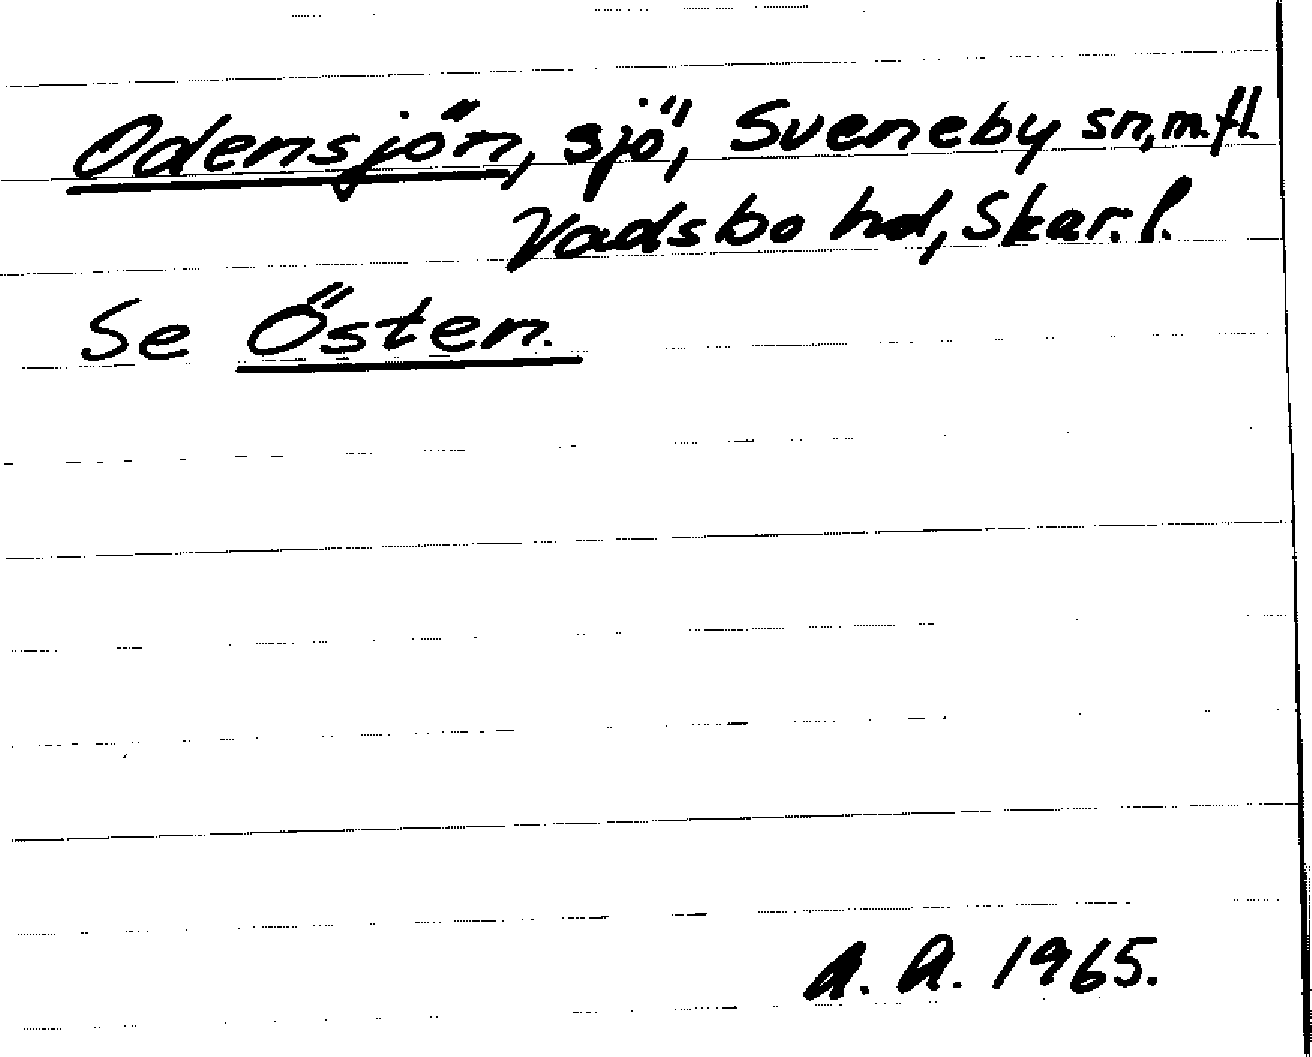 Odensjön, sjö, Sveneby sn, m.fl.
Vadsbo hd, Skar. l.
Se Östen.
A. A. 1965.